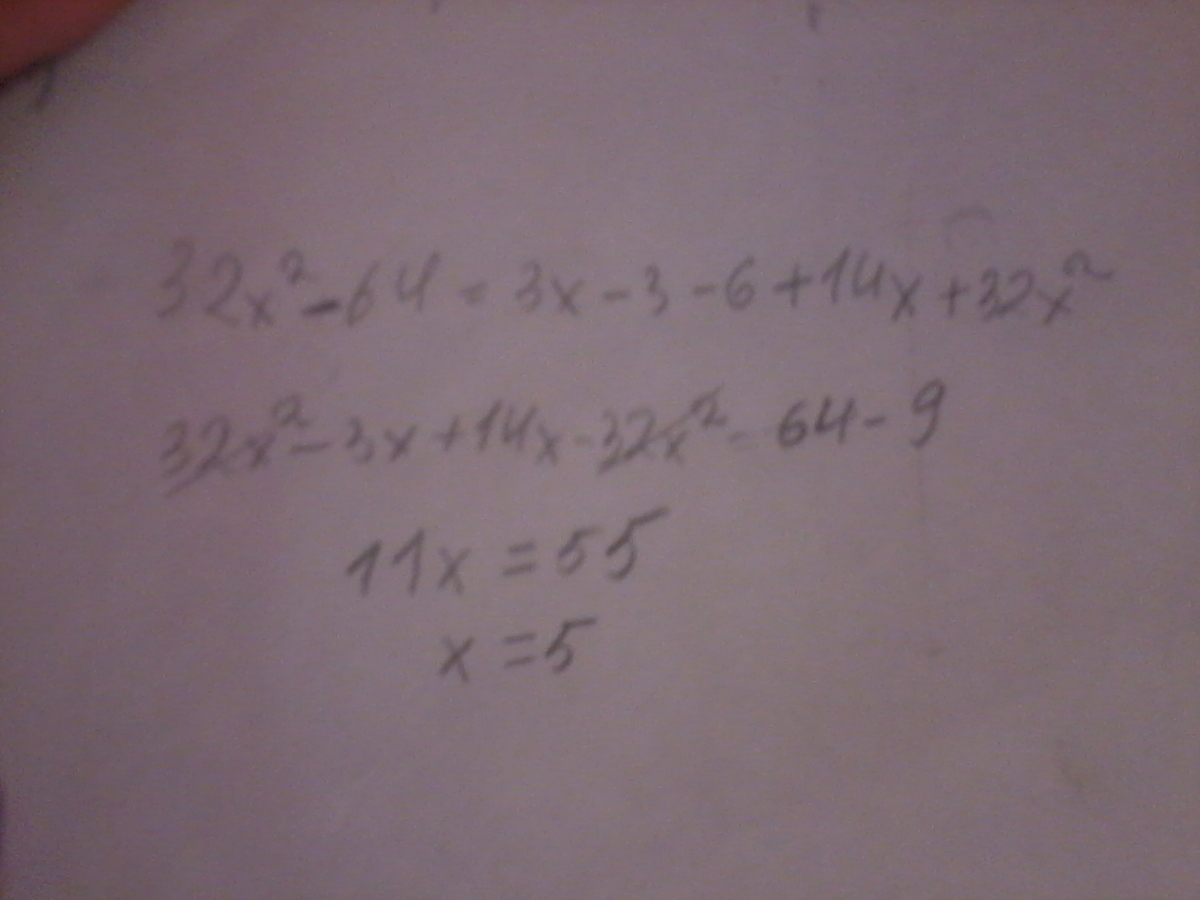 32x² - 64 = 3x - 3 - 6 + 14x + 32x²
32x² - 3x + 14x - 32x² = 64 - 9
11x = 55
x = 5